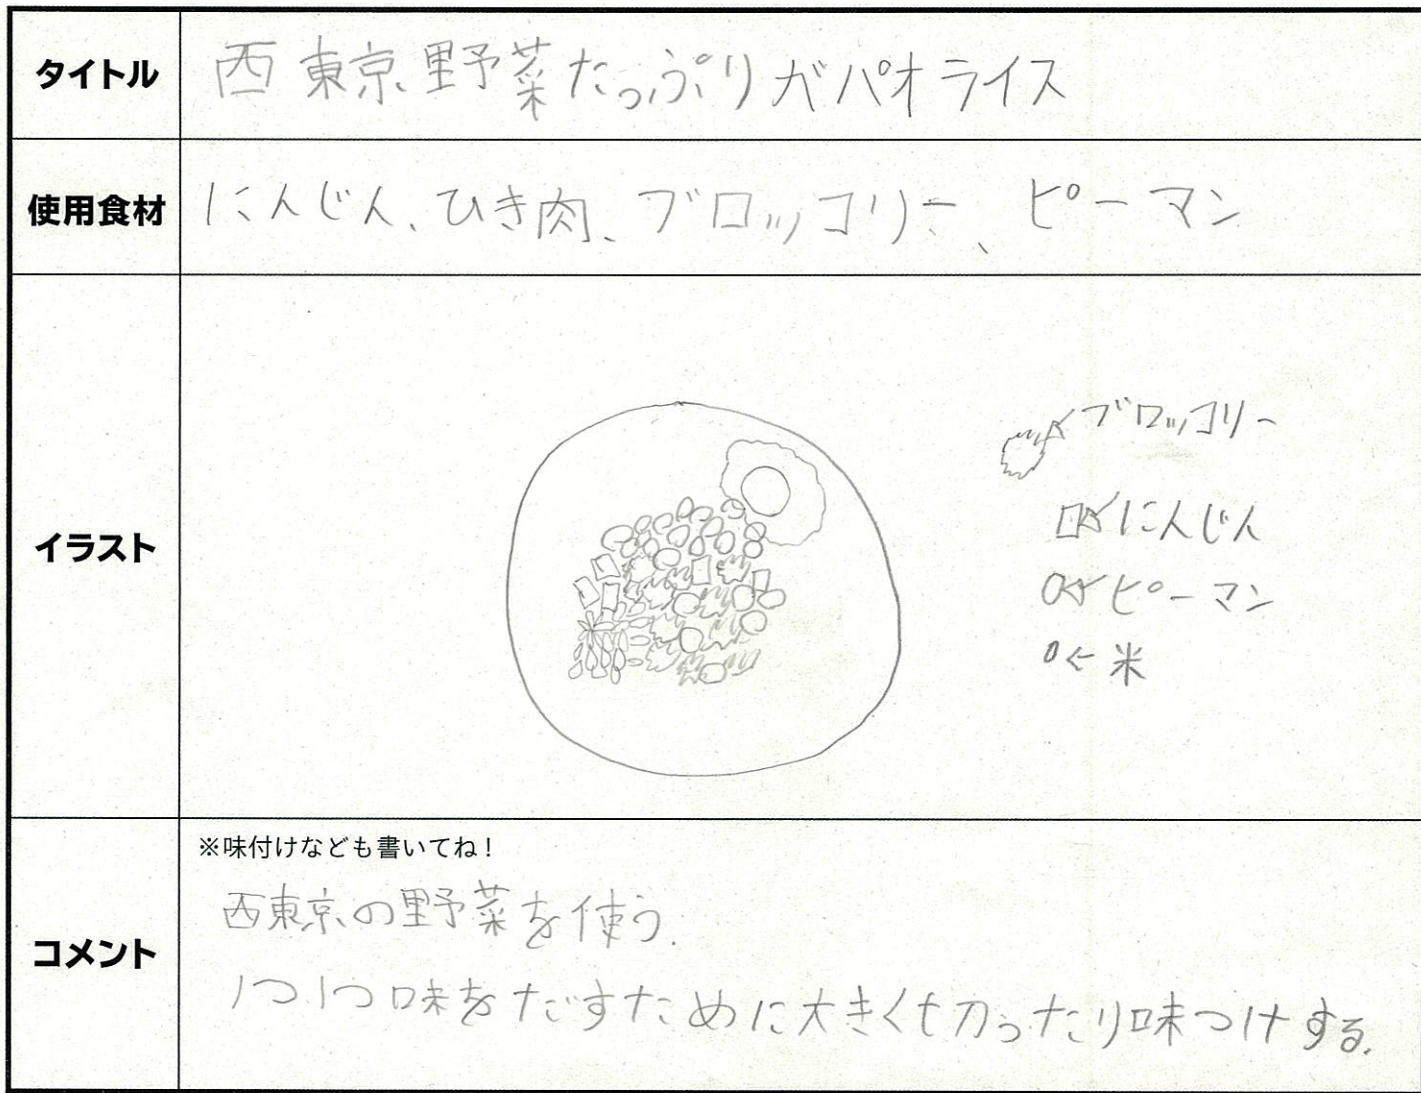 タイトル
西東京野菜たっぷりガパオライス
使用食材
にんじん、ひき肉、ブロッコリー、ピーマン
イラスト
ブロッコリー
にんじん
ピーマン
米
コメント
※味付けなども書いてね!
西東京の野菜を使う.
1つ1つ味をだすために大きく切ったり味つけする.